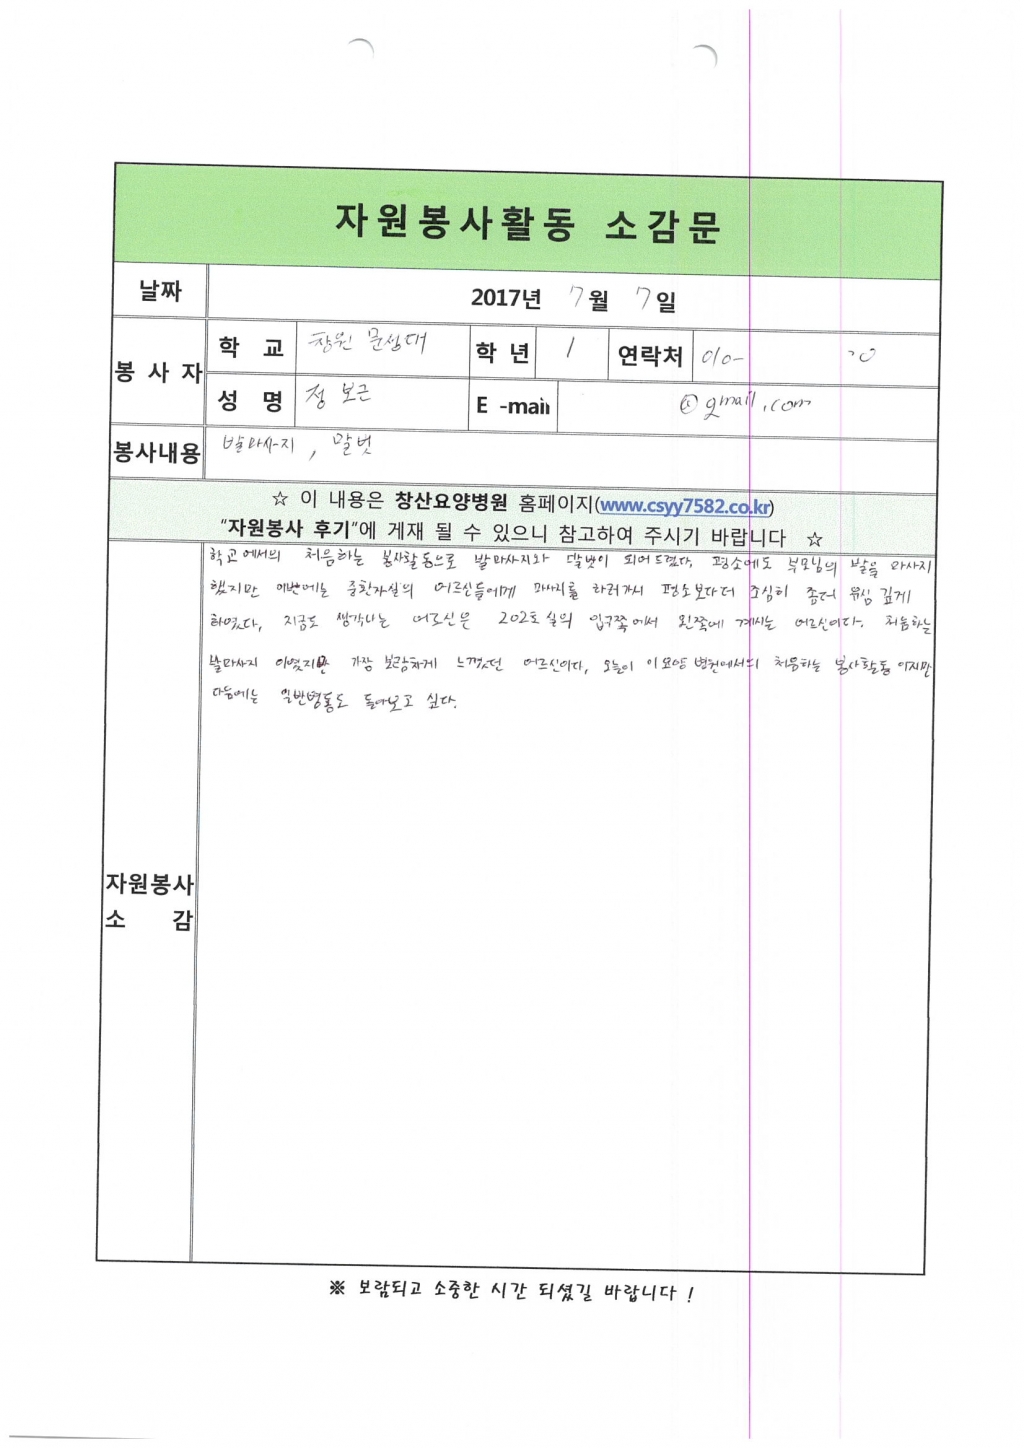 자원봉사활동 소감문
날짜 2017년 7월 7일
봉 사 자
학 교 창원 문성대 학 년 1 연락처 010-
성 명 정 보근 E -mail @gmail.com
봉사내용 발마사지, 말벗
☆ 이 내용은 창산요양병원 홈페이지(www.csyy7582.co.kr)
"자원봉사 후기"에 게재 될 수 있으니 참고하여 주시기 바랍니다 ☆
학교에서의 처음하는 봉사활동으로 발마사지와 말벗이 되어드렸다. 평소에도 부모님의 발을 마사지
했지만 이번에는 중환자실의 어르신들에게 마사지를 하러가서 평소보다 더 조심히 좀더 유심 깊게
하였다, 지금도 생각나는 어르신은 202호실의 입구쪽에서 왼쪽에 계시는 어르신이다. 처음하는
발마사지 이였지만 가장 보람차게 느꼈던 어르신이다, 오늘이 이 요양 병원에서의 처음하는 봉사활동 이지만
다음에는 일반병동도 돌아보고 싶다.
자원봉사
소 감
※ 보람되고 소중한 시간 되셨길 바랍니다 !